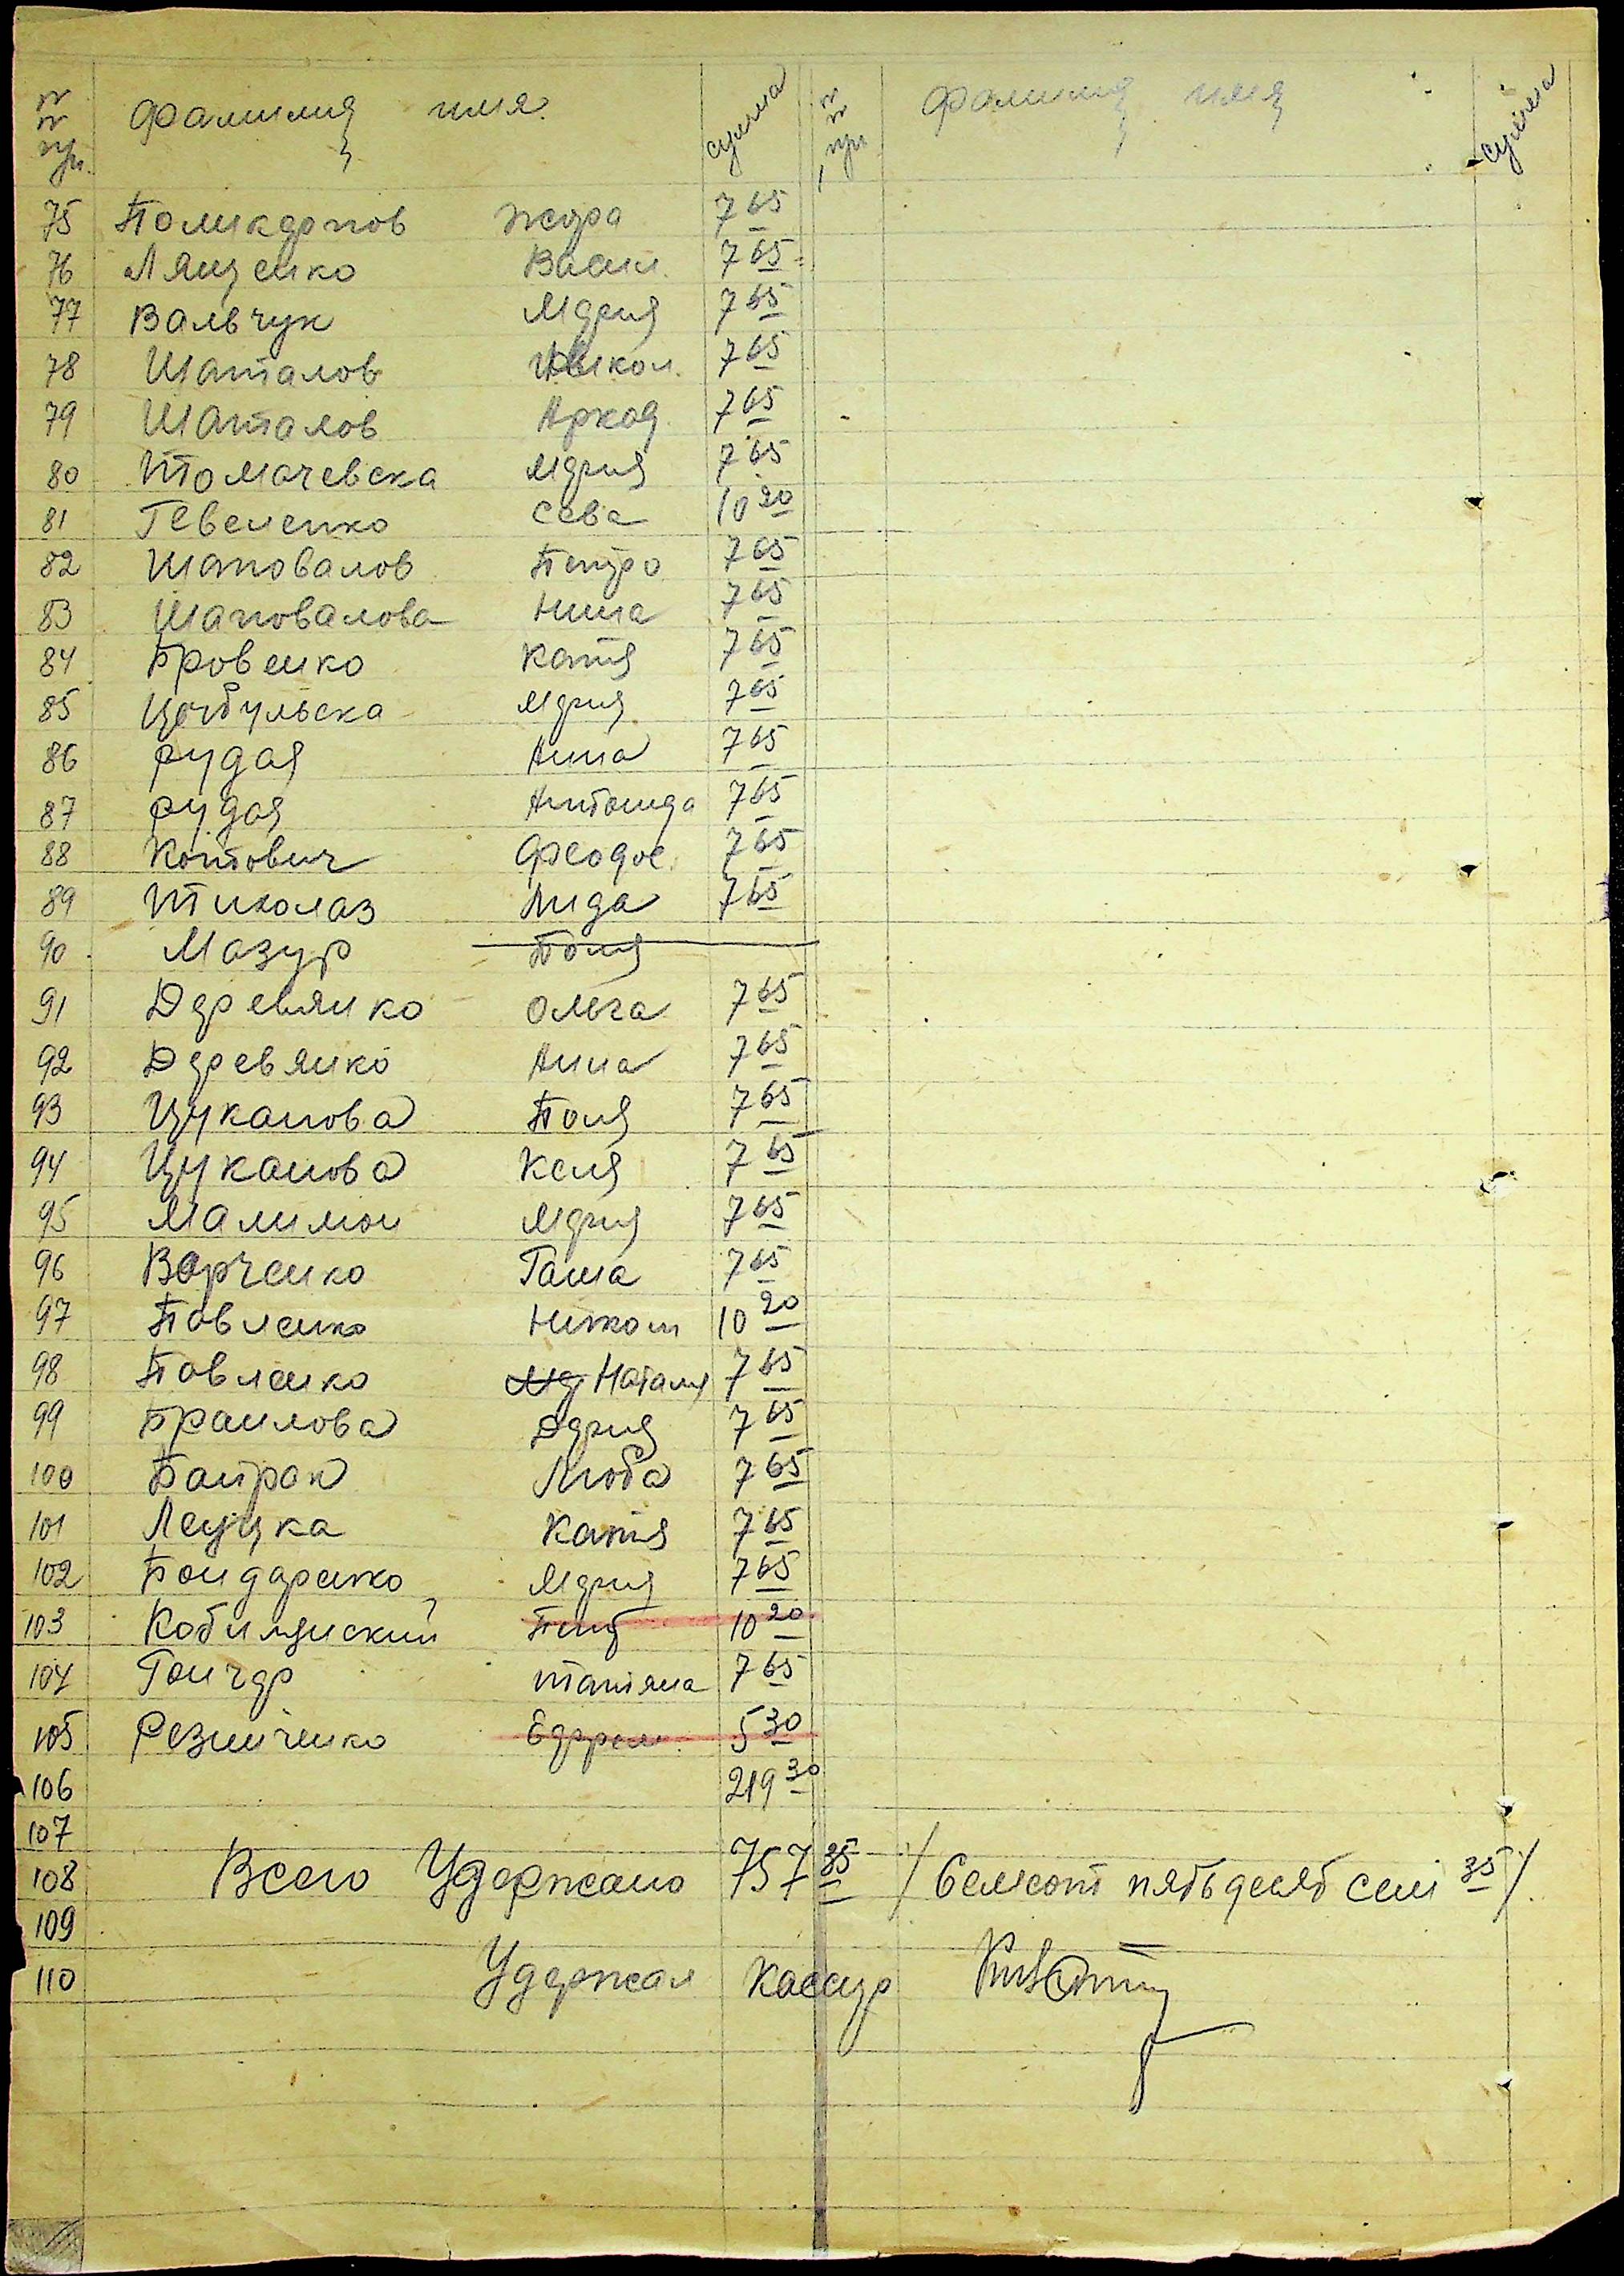 № № пп. Фамилия имя. сумма № № пп Фамилия имя сумма
75 Поликарпов Жора 7 65
76 Лященко Васил. 7 65
77 Вальчук Мария 7 65
78 Шаталов Никол. 7 65
79 Шаталов Аркад. 7 65
80 Томачевска Мария 7 65
81 Гевеленко Сева 10 20
82 Шаповалов Петро 7 65
83 Шаповалова Нина 7 65
84 Бровенко Катя 7 65
85 Цыбульска Мария 7 65
86 Рудая Анна 7 65
87 Рудая Антонида 7 65
88 Котович Феодос. 7 65
89 Тиколаз Лида 7 65
90 Мазур Поля
91 Деревянко Ольга 7 65
92 Деревянко Анна 7 65
93 Цуканова Поля 7 65
94 Цуканова Кеня 7 65
95 Малимон Мария 7 65
96 Варченко Гаша 7 65
97 Павленко Никол 10 20
98 Павленко Наталия 7 65
99 Браилова Дария 7 65
100 Байрак Люба 7 65
101 Леуцка Катя 7 65
102 Бондаренко Мария 7 65
103 10 20
104 Гончар Татяна 7 65
105 Резниченко 5 30
106 219 30
107
108 Всего Удержано 757 35 /Семсот пятьдесят семь 35/.
109
110 Удержал Кассир